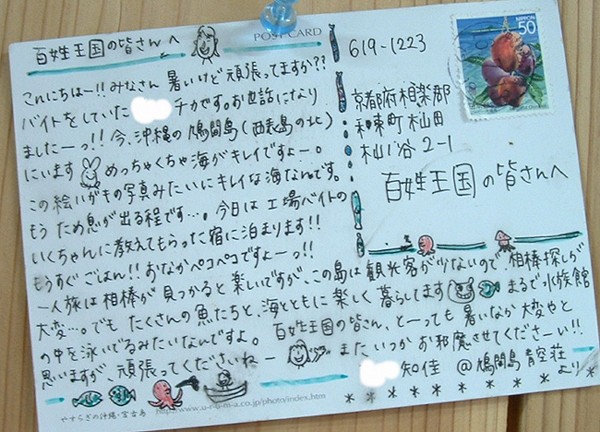 百姓王国の皆さんへ
POST CARD
こんにちはー!! みなさん 暑いけど頑張ってますか??
バイトをしていた チカです。お世話になり
ましたーっ!! 今、沖縄の鳩間島(西表島の北)
にいます めっちゃくちゃ海がキレイですよー。
この絵いがきの写真みたいにキレイな海なんです。
もう ため息が出る程です…。今日は 工場バイトの
いくちゃんに教えてもらった宿に泊まります!!
もうすぐごはん!! おなかペコペコですよーっ!!
一人旅は相棒が見っかると楽しいですが、この島は観光客が少ないので 相棒探しが
大変…。でも たくさんの魚たちと、海とともに楽しく 暮らしてます まるで水族館
の中を泳いでるみたいなんですよ。 百姓王国の皆さん、とーっても暑いなか大変やと
思いますが、頑張ってくださいねー またいつか お邪魔させてくださーい!!
知佳 @鳩間島 青空荘
より
619-1223
京都府相楽郡
和束町杣田
杣川谷 2-1
百姓王国の皆さんへ
NIPPON
50
やすらぎの沖縄・宮古島
http://www.u-r-u-m-a.co.jp/photo/index.htm